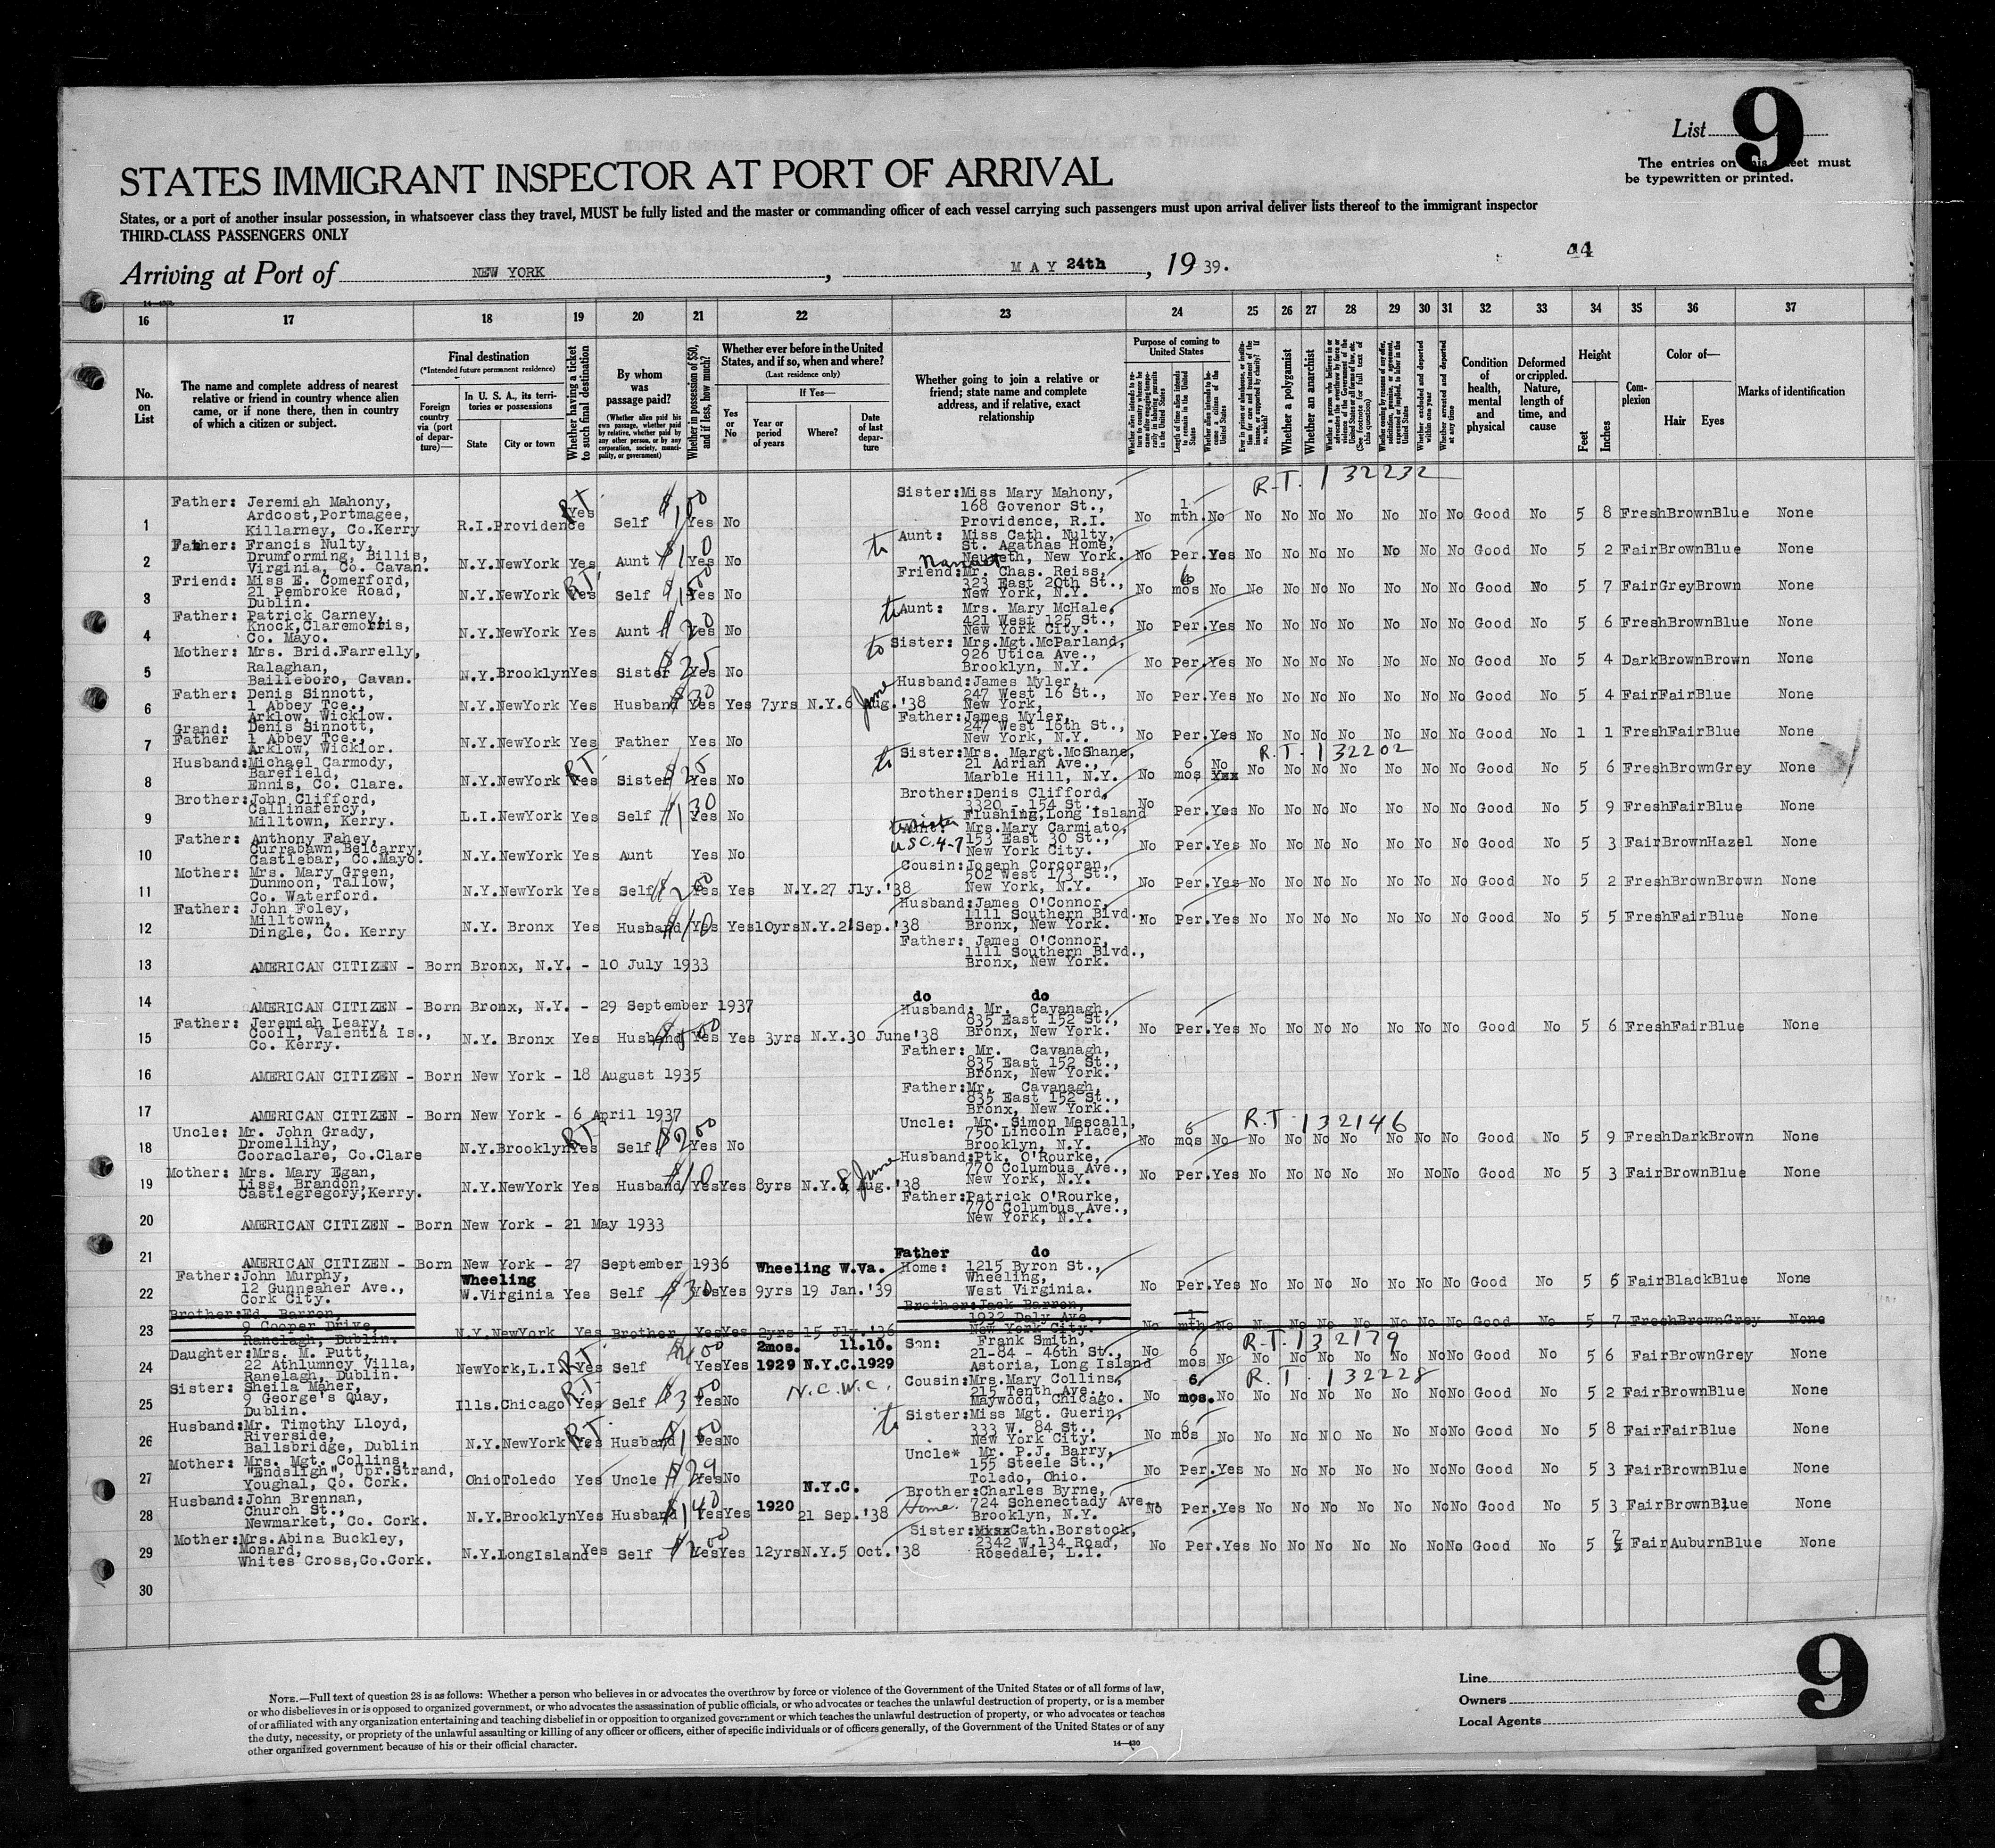 List 9
The entries on this sheet must
be typewritten or printed.
STATES IMMIGRANT INSPECTOR AT PORT OF ARRIVAL
States, or a port of another insular possession, in whatsoever class they travel, MUST be fully listed and the master or commanding officer of each vessel carrying such passengers must upon arrival deliver lists thereof to the immigrant inspector
THIRD-CLASS PASSENGERS ONLY
44
Arriving at Port of NEW YORK, MAY 24th, 19 39.
16 17 18 19 20 21 22 23 24 25 26 27 28 29 30 31 32 33 34 35 36 37
No. on List
The name and complete address of nearest relative or friend in country whence alien came, or if none there, then in country of which a citizen or subject.
Final destination
(*Intended future permanent residence)
Foreign country via (port of departure)—
In U. S. A., its territories or possessions
State City or town
Whether having a ticket to such final destination
By whom was passage paid?
(Whether alien paid his own passage, whether paid by relative, whether paid by any other person, or by any corporation, society, municipality, or government)
Whether in possession of $50, and if less, how much?
Whether ever before in the United States, and if so, when and where?
(Last residence only)
Yes or No
If Yes—
Year or period of years
Where?
Date of last departure
Whether going to join a relative or friend; state name and complete address, and if relative, exact relationship
Purpose of coming to United States
Length of time alien intends to remain in the United States
Whether alien intends to become a citizen of the United States
Whether a polygamist
Whether an anarchist
(See footnote for full text of this question)
Whether excluded and deported within one year
Whether arrested and deported at any time
Condition of health, mental and physical
Deformed or crippled. Nature, length of time, and cause
Height
Feet Inches
Complexion
Color of—
Hair Eyes
Marks of identification
R.T. 132232
1 Father: Jeremiah Mahony, Ardcost, Portmagee, Killarney, Co.Kerry R.I. Providence RT Yes Self $100 Yes No Sister: Miss Mary Mahony, 168 Govenor St., Providence, R.I. No 1 mth. No No No No No No No No Good No 5 8 Fresh Brown Blue None
2 Father: Francis Nulty, Drumforming, Billis, Virginia, Co. Cavan. N.Y. NewYork Yes Aunt $10 Yes No to Aunt: Miss Cath. Nulty, St. Agathas Home, Nanuet, New York. No Per. Yes No No No No No No No Good No 5 2 Fair Brown Blue None
3 Friend: Miss E. Comerford, 21 Pembroke Road, Dublin. N.Y. NewYork RT Yes Self $1500 Yes No Friend: Mr. Chas. Reiss, 323 East 20th St., New York, N.Y. No 6 mos No No No No No No No No Good No 5 7 Fair Grey Brown None
4 Father: Patrick Carney, Knock, Claremorris, Co. Mayo. N.Y. NewYork Yes Aunt $20 Yes No to Aunt: Mrs. Mary McHale, 421 West 125 St., New York City. No Per. Yes No No No No No No No Good No 5 6 Fresh Brown Blue None
5 Mother: Mrs. Brid.Farrelly, Ralaghan, Bailieboro, Cavan. N.Y. Brooklyn Yes Sister $25 Yes No to Sister: Mrs.Mgt.McParland, 926 Utica Ave., Brooklyn, N.Y. No Per. Yes No No No No No No No Good No 5 4 Dark Brown Brown None
6 Father: Denis Sinnott, 1 Abbey Tce., Arklow, Wicklow. N.Y. NewYork Yes Husband $30 Yes Yes 7yrs N.Y. 6 Aug. June '38 Husband: James Myler, 247 West 16 St., New York, No Per. Yes No No No No No No No Good No 5 4 Fair Fair Blue None
7 Grand: Father Denis Sinnott, 1 Abbey Tce., Arklow, Wicklor. N.Y. NewYork Yes Father Yes No Father: James Myler, 247 West 16th St., New York, N.Y. No Per. Yes No No No No No No No Good No 1 1 Fresh Fair Blue None
R.T. 132202
8 Husband: Michael Carmody, Barefield, Ennis, Co. Clare. N.Y. NewYork RT Yes Sister $25 Yes No to Sister: Mrs. Margt.McShane, 21 Adrian Ave., Marble Hill, N.Y. No 6 mos No No No No No No No No Good No 5 6 Fresh Brown Grey None
9 Brother: John Clifford, Callinafercy, Milltown, Kerry. L.I. NewYork Yes Self $130 Yes No Brother: Denis Clifford, 3320 - 154 St., Flushing, Long Island No Per. Yes No No No No No No No Good No 5 9 Fresh Fair Blue None
10 Father: Anthony Fahey, Currabawn, Belcarry, Castlebar, Co.Mayo. N.Y. NewYork Yes Aunt Yes No USC.4-7 Aunt: Mrs.Mary Carmiato, 153 East 30 St., New York City. No Per. Yes No No No No No No No Good No 5 3 Fair Brown Hazel None
11 Mother: Mrs. Mary Green, Dunmoon, Tallow, Co. Waterford. N.Y. NewYork Yes Self $200 Yes Yes N.Y. 27 Jly.'38 Cousin: Joseph Corcoran, 502 West 173 St., New York, N.Y. No Per. Yes No No No No No No No Good No 5 2 Fresh Brown Brown None
12 Father: John Foley, Milltown, Dingle, Co. Kerry N.Y. Bronx Yes Husband $10 Yes Yes 10yrs N.Y. 21 Sep.'38 Husband: James O'Connor, 1111 Southern Blvd., Bronx, New York. No Per. Yes No No No No No No No Good No 5 5 Fresh Fair Blue None
13 AMERICAN CITIZEN - Born Bronx, N.Y. - 10 July 1933 Father: James O'Connor, 1111 Southern Blvd., Bronx, New York.
14 AMERICAN CITIZEN - Born Bronx, N.Y. - 29 September 1937 do do
15 Father: Jeremiah Leary, Cooil, Valentia Is., Co. Kerry. N.Y. Bronx Yes Husband $500 Yes Yes 3yrs N.Y. 30 June'38 Husband: Mr. Cavanagh, 835 East 152 St., Bronx, New York. No Per. Yes No No No No No No No Good No 5 6 Fresh Fair Blue None
16 AMERICAN CITIZEN - Born New York - 18 August 1935 Father: Mr. Cavanagh, 835 East 152 St., Bronx, New York.
17 AMERICAN CITIZEN - Born New York - 6 April 1937 Father: Mr. Cavanagh, 835 East 152 St., Bronx, New York.
R.T. 132146
18 Uncle: Mr. John Grady, Dromellihy, Cooraclare, Co.Clare N.Y. Brooklyn RT Yes Self $200 Yes No Uncle: Mr. Simon Mescall, 750 Lincoln Place, Brooklyn, N.Y. No 6 mos No No No No No No No No Good No 5 9 Fresh Dark Brown None
19 Mother: Mrs. Mary Egan, Liss, Brandon, Castlegregory, Kerry. N.Y. NewYork Yes Husband $10 Yes Yes 8yrs N.Y. 8 Aug. June '38 Husband: Ptk. O'Rourke, 770 Columbus Ave., New York, N.Y. No Per. Yes No No No No No No No Good No 5 3 Fair Brown Blue None
20 AMERICAN CITIZEN - Born New York - 21 May 1933 Father: Patrick O'Rourke, 770 Columbus Ave., New York, N.Y.
21 AMERICAN CITIZEN - Born New York - 27 September 1936 Father do
22 Father: John Murphy, 12 Gunpeaher Ave., Cork City. Wheeling W.Virginia Yes Self $30 Yes Yes 9yrs Wheeling W.Va. 19 Jan.'39 Home: 1215 Byron St., Wheeling, West Virginia. No Per. Yes No No No No No No No Good No 5 6 Fair Black Blue None
23 Brother: Ed. Barron, 9 Cooper Drive, Ranelagh, Dublin. N.Y. NewYork Yes Brother Yes Yes 2yrs 15 Jly.'36 Brother: Jack Barron, 1932 Daly Ave., New York City. No 1 mth. No No No No No No No No Good No 5 7 Fresh Brown Grey None
R.T. 132179
24 Daughter: Mrs. M. Putt, 22 Athlumncy Villa, Ranelagh, Dublin. NewYork, L.I. RT Yes Self $400 Yes Yes 2mos. 1929 N.Y.C. 11.10. 1929 Son: Frank Smith, 21-84 - 46th St., Astoria, Long Island No 6 mos No No No No No No No No Good No 5 6 Fair Brown Grey None
R.T. 132228
25 Sister: Sheila Maher, 9 George's Quay, Dublin. Ills. Chicago RT Yes Self $300 Yes No N.C.W.C. Cousin: Mrs.Mary Collins, 215 Tenth Ave., Maywood, Chicago. No 6 mos. No No No No No No No No Good No 5 2 Fair Brown Blue None
26 Husband: Mr. Timothy Lloyd, Riverside, Ballsbridge, Dublin N.Y. NewYork RT Yes Husband $100 Yes No to Sister: Miss Mgt. Guerin, 333 W. 84 St., New York City. No 6 mos No No No No No No No No Good No 5 8 Fair Fair Blue None
27 Mother: Mrs. Mgt. Collins, "Endsligh", Upr.Strand, Youghal, Co. Cork. Ohio Toledo Yes Uncle $29 Yes No Uncle* Mr. P.J. Barry, 155 Steele St., Toledo, Ohio. No Per. Yes No No No No No No No Good No 5 3 Fair Brown Blue None
28 Husband: John Brennan, Church St., Newmarket, Co. Cork. N.Y. Brooklyn Yes Husband $140 Yes Yes 1920 N.Y.C. 21 Sep.'38 Brother: Charles Byrne, Home. 724 Schenectady Ave., Brooklyn, N.Y. No Per. Yes No No No No No No No Good No 5 3 Fair Brown Blue None
29 Mother: Mrs.Abina Buckley, Monard, Whites Cross, Co.Cork. N.Y. LongIsland Yes Self $200 Yes Yes 12yrs N.Y. 5 Oct.'38 Sister: Cath.Borstock, 2342 W.134 Road, Rosedale, L.I. No Per. Yes No No No No No No No Good No 5 7 Fair Auburn Blue None
30
NOTE.—Full text of question 28 is as follows: Whether a person who believes in or advocates the overthrow by force or violence of the Government of the United States or of all forms of law,
or who disbelieves in or is opposed to organized government, or who advocates the assassination of public officials, or who advocates or teaches the unlawful destruction of property, or is a member
of or affiliated with any organization entertaining and teaching disbelief in or opposition to organized government or which teaches the unlawful destruction of property, or who advocates or teaches
the duty, necessity, or propriety of the unlawful assaulting or killing of any officer or officers, either of specific individuals or of officers generally, of the Government of the United States or of any
other organized government because of his or their official character.
14—430
Line
Owners
Local Agents
9